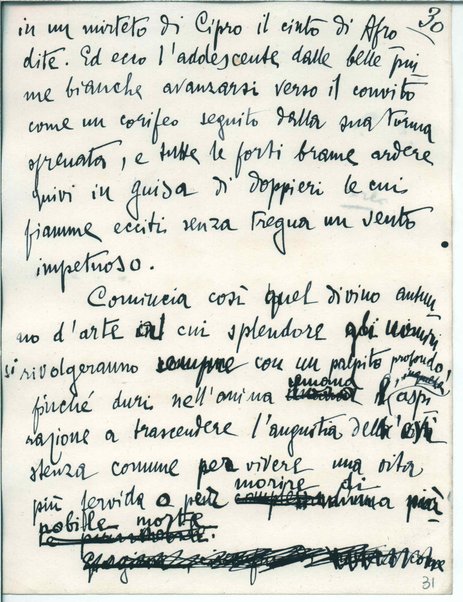 30
in un mirteto di Cipro il cinto di Afro
dite. Ed ecco l'adolescente dalle belle piu
me bianche avanzarsi verso il convito
come un corifeo seguito dalla sua turma
sfrenata, e tutte le forti brame ardere
quivi in guisa di doppieri le cui
fiamme ecciti senza tregua un vento
impetuoso.
Comincia così quel divino autun
no d'arte al cui splendore gli uomini
si rivolgeranno sempre con un palpito profondo,
finché duri nell'anima umana l'aspi
razione a trascendere l'angustia dell'esi
stenza comune per vivere una vita
più fervida o per morire di più
nobile morte
31